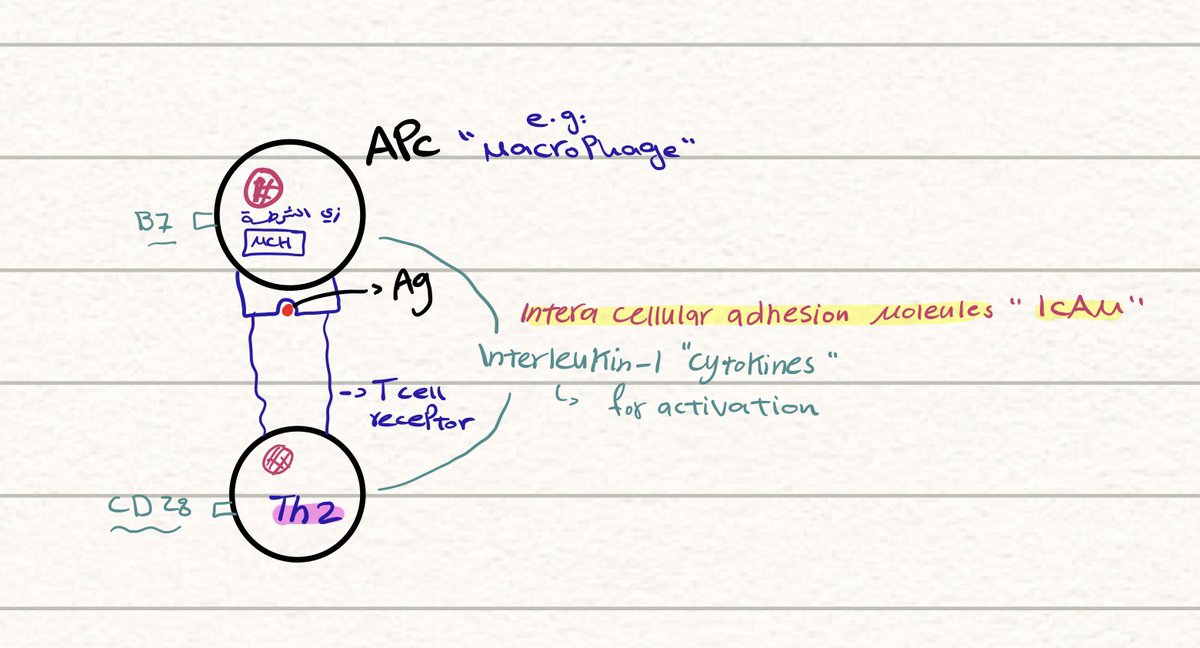 APc
e.g:
"MacroPhage"
B7
زي الشرطة
MCH
Ag
Intera cellular adhesion Moleules "ICAM"
Interleukin-1 "cytokines"
↳ for activation
-> T cell
receptor
CD28
Th2